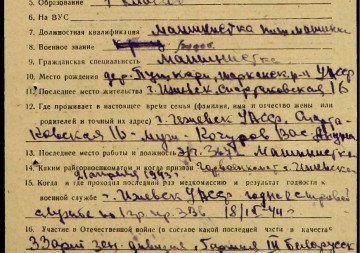 5. Образование 7 классов
6. На ВУС
7. Должностная квалификация машинистка пишмашинки
8. Военное звание рядов.
9. Гражданская специальность машинистка
10. Место рождения дер. УАССР
11. Последнее место жительства г. Ижевск, Спартаковская 16
12. Где проживает в настоящее время семья (фамилия, имя и отчество жены или
родителей и точный их адрес) г. Ижевск УАССР, Спарта-
ковская 16 - муж - Кочуров Вас. Андр.
13. Последнее место работы и должность Машинистка
14. Каким райгорвоенкоматом и когда призван Горвоенкомат г. Ижевска
1943 г.
15. Когда и где проходил последний раз медкомиссию и результат годности к
военной службе г. Ижевск УАССР годна к строевой
службе по I гр. пр. 336
16. Участие в Отечественной войне (в составе какой последней части в качестве
3 Зарит зен. дивизия, III Белорусск